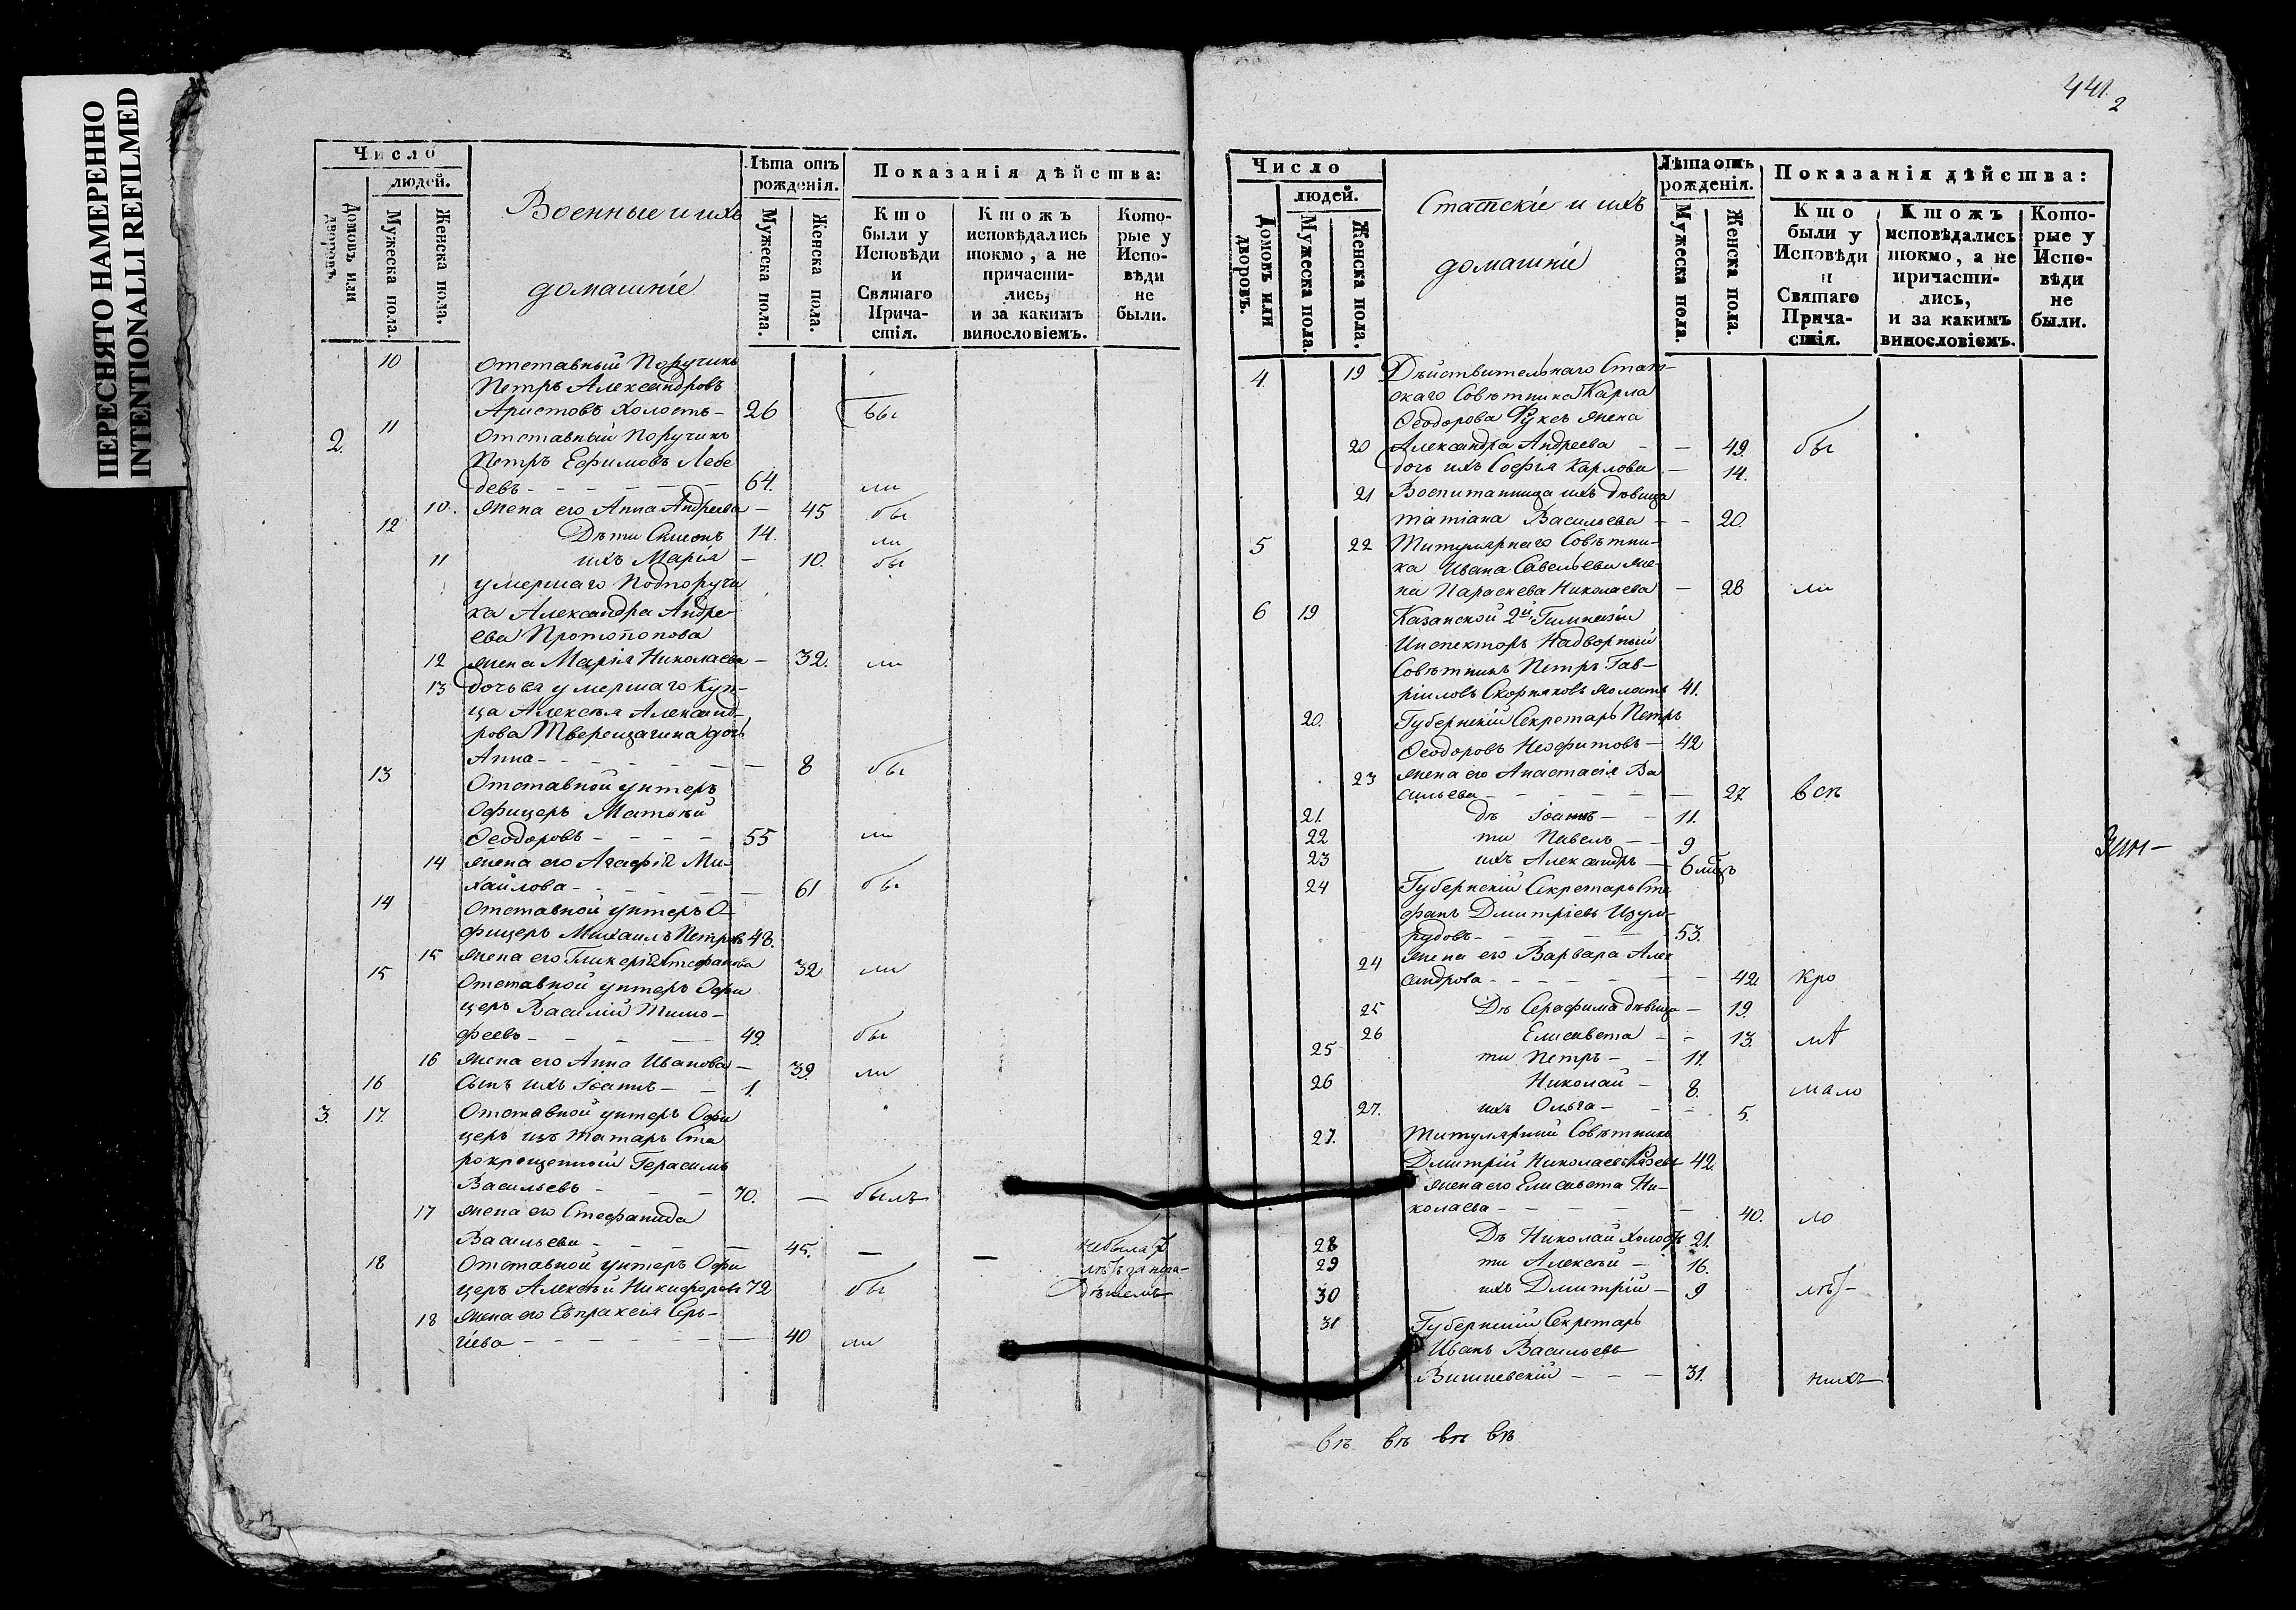 ПЕРЕСНЯТО НАМЕРЕННО
INTENTIONALLI REFILMED
Число
людей.
Домовъ или дворовъ.
Мужеска пола.
Женска пола.
Военные и ихъ
домашніе
Лѣта отъ рожденія.
Мужеска пола.
Женска пола.
Показанія дѣйства:
Кто были у Исповѣди и Святаго Прича-стія.
Ктожъ исповѣдались токмо, а не причасти-лись, и за какимъ винословіемъ.
Кото-рые у Испо-вѣди не были.
10 Отставный Поручикъ
Петръ Александровъ
Аристовъ холостъ - 26 бы
2. 11 Отставный Поручикъ
Петръ Ефимовъ Лебе
девъ - - - - - 64. ли
10. жена его Анна Андреева - 45 бы
12 Дѣти Симеонъ 14. ли
11 ихъ Марія - 10. бы
умершаго Подпоручи
ка Александра Андре
ева Протопопова
12 жена Марія Николаева - 32. ли
13 дочь ея умершаго Куп-
ца Алексѣя Александ-
рова Тверещагина дочь
Анна - - - - - 8 бы
13 Отставной унтеръ
Офицеръ Матвѣй
Ѳеодоровъ - - - - 55 ли
14 жена его Агафія Ми-
хайлова - - - - - 61 бы
14 Отставной унтеръ О-
фицеръ Михаилъ Петровъ 48.
15 жена его Гликерія Стефанова 32 ли
15 Отставной унтеръ Офи
церъ Василій Тимо-
феевъ - - - - 49. бы
16 жена его Анна Иванова - 39. ли
16 Сынъ ихъ Іоаннъ - - 1.
3. 17. Отставной унтеръ Офи
церъ изъ татаръ Ста
рокрещенный Герасимъ
Васильевъ - - - 70. — былъ
17 жена его Стефанида
Васильева - - - - 45. — — небыла
18 Отставной унтеръ Офи
церъ Алексѣй Никифоровъ 72 бы
18 жена его Евпраксія Сер-
гіева - - - - - - 40 ли
441.
2
Число
людей.
Домовъ или дворовъ.
Мужеска пола.
Женска пола.
Статскіе и ихъ
домашніе
Лѣта отъ рожденія.
Мужеска пола.
Женска пола.
Показанія дѣйства:
Кто были у Исповѣди и Святаго Прича-стія.
Ктожъ исповѣдались токмо, а не причасти-лись, и за какимъ винословіемъ.
Кото-рые у Испо-вѣди не были.
4. 19 Дѣйствительнаго Стат-
скаго Совѣтника Карла
Ѳеодорова Фуксъ жена
Александра Андреева - - 49. бы
20 дочь ихъ Софія Карлова - 14.
21 Воспитанница ихъ дѣвица
татіана Васильева - - 20.
5 22 Титулярнаго Совѣтни-
ка Ивана Савельева же-
на Параскева Николаева - 28 ли
6 19 Казанской 2й Гимназіи
Инспекторъ Надворный
Совѣтникъ Петръ Гав-
ріиловъ Скорняковъ холостъ 41.
20. Губернскій Секретарь Петръ
Ѳеодоровъ Неофитовъ - 42
23 жена его Анастасія Ва
сильева - - - - - - 27 всѣ
21. дѣ Іоаннъ - - 11.
22 ти Павелъ - - 9
23 ихъ Александръ - 6 мѣц
24 Губернскій Секретарь Сте
фанъ Дмитріевъ Изум-
рудовъ - - - - - 53.
24 жена его Варвара Алек
сандрова - - - - - - 42 кро
25 Дѣ Серафима дѣвица - 19.
26 Елисавета - - 13. мѣ
25 ти Петръ - - 11.
26 Николай - 8. мало
27. ихъ Ольга - - - 5.
27. Титулярный Совѣтникъ
Дмитрій Николаевъ 42
жена его Елисавета Ни-
колаева - - - - - 40. ло
28 Дѣ Николай холостъ 21.
29 ти Алексѣй - 16.
30 ихъ Дмитрій - 9 лѣт-
31 Губернскій Секретарь
Иванъ Васильевъ
Вишневскій - - - 31. нихъ
въ въ въ въ